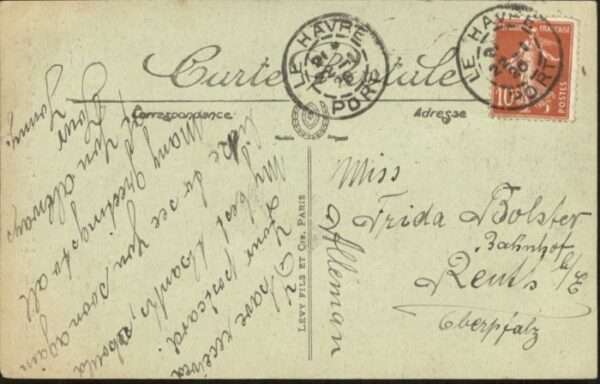 Carte Postale
Correspondance
Adresse
LE HAVRE
PORT
LE HAVRE
PORT
FRANÇAISE
POSTES
10
I have received
Your postcard.
My best thanks, should
like to see you soon again
Many greetings to all
of you always
Your
LEVY FILS ET Cie, PARIS
Miss
Frida Bolster
Bahnhof
Reuth b/E
Oberpfalz
Alleman